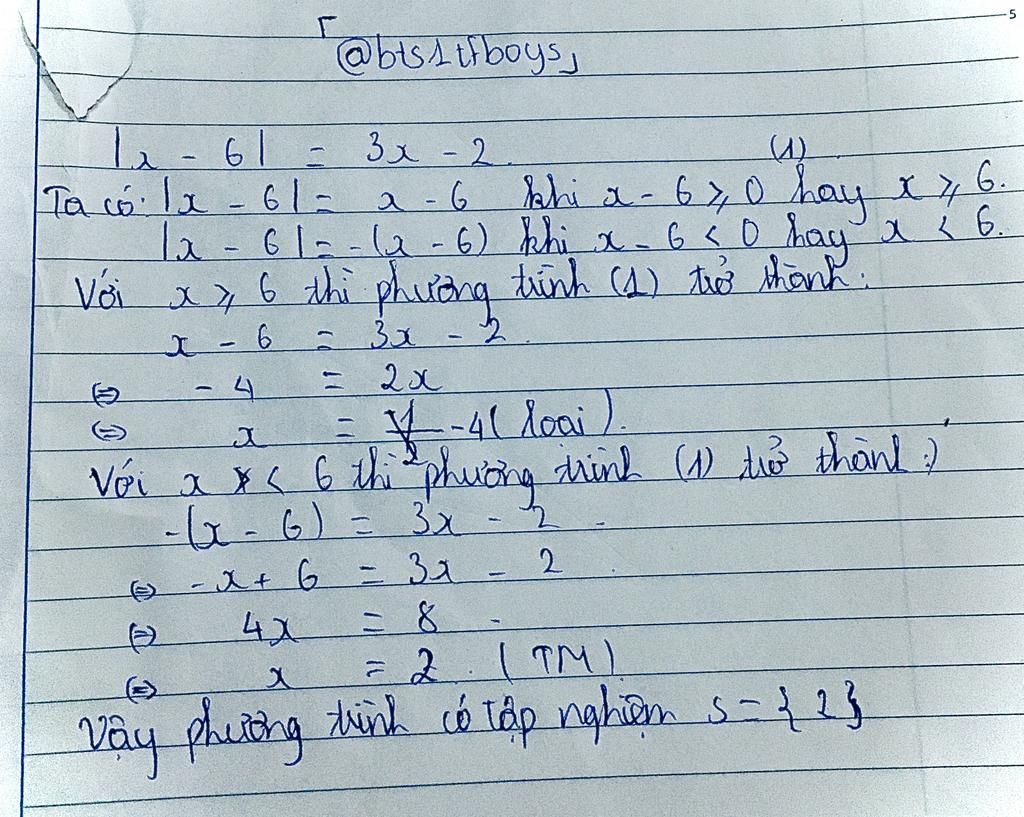 5
「@bts1tfboys」
|x - 6| = 3x - 2. (1)
Ta có: |x - 6| = x - 6 khi x - 6 ⩾ 0 hay x ⩾ 6.
|x - 6| = -(x - 6) khi x - 6 < 0 hay x < 6.
Với x ⩾ 6 thì phương trình (1) trở thành:
x - 6 = 3x - 2.
⇔ - 4 = 2x
⇔ x = -4 (loại).
Với x < 6 thì phương trình (1) trở thành:)
-(x - 6) = 3x - 2
⇔ -x + 6 = 3x - 2
⇔ 4x = 8
⇔ x = 2. (TM)
Vậy phương trình có tập nghiệm S = {2}